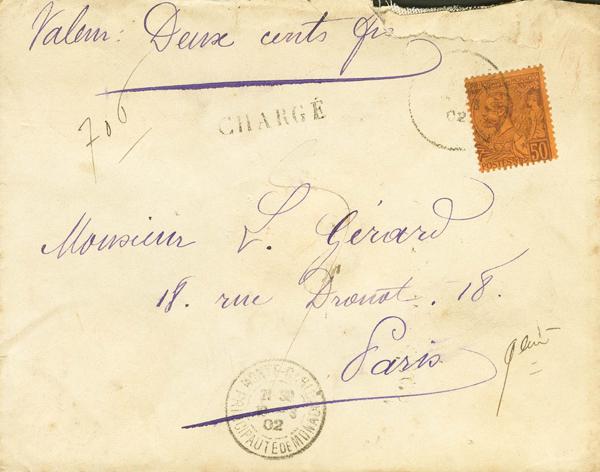 Valeur: Deux cents frs
CHARGÉ
706
02
50
Monsieur L. Gérard
18. rue Drouot. 18.
Paris
MONTE-CARLO
21 30
02
PRINCIPAUTÉ DE MONACO